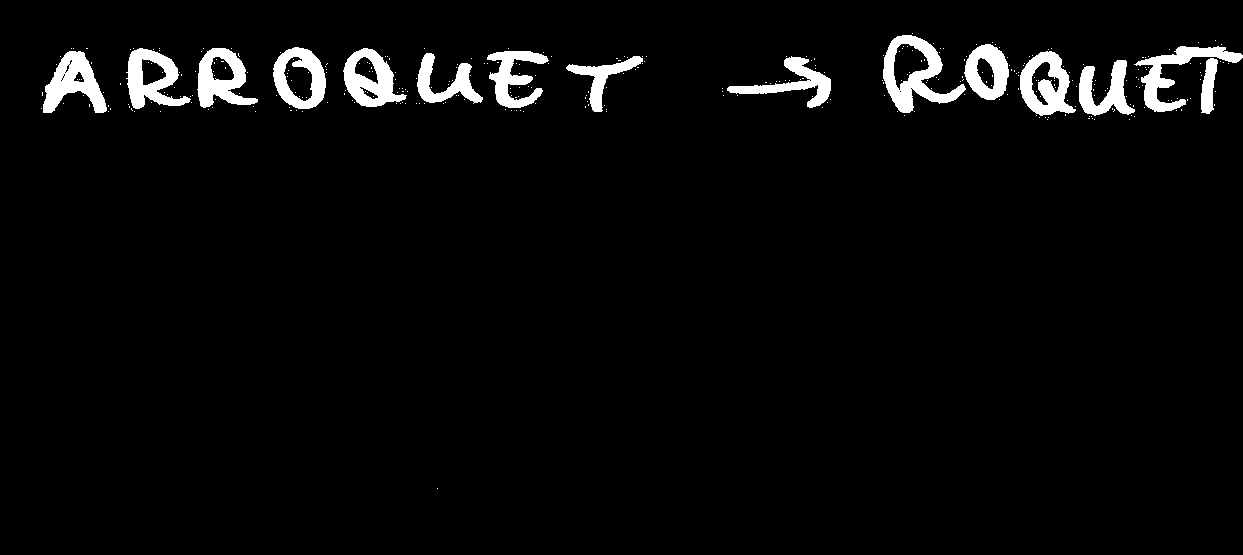 ARROQUET → ROQUET